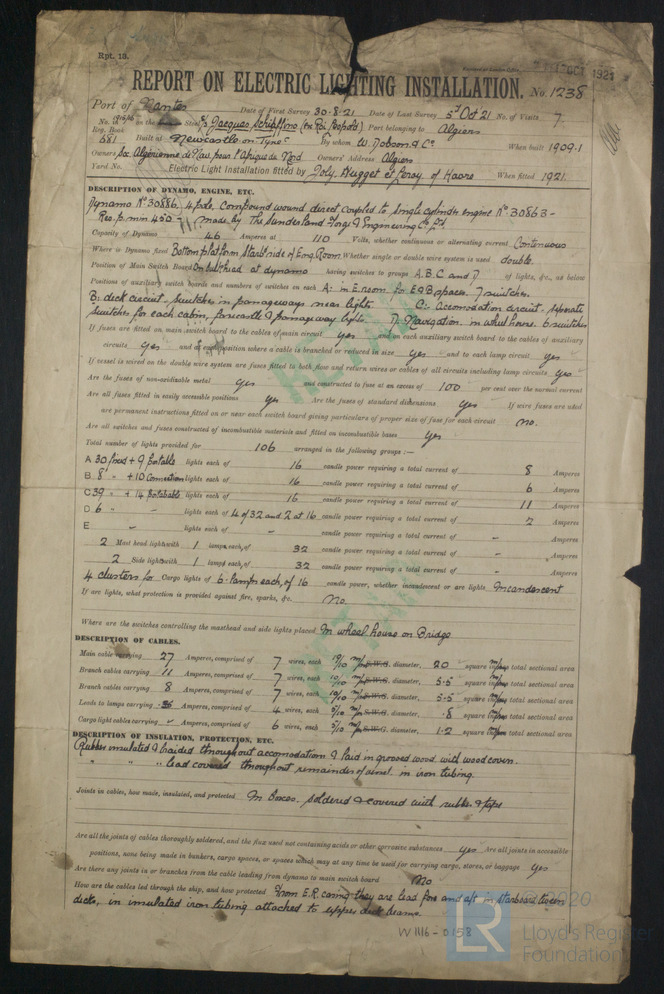 Rpt. 13.
OCT 1921
REPORT ON ELECTRIC LIGHTING INSTALLATION. No. 1238
Port of Nantes Date of First Survey 30.8.21 Date of Last Survey 5th Oct 21 No. of Visits 7
No. in the Reg. Book on the S/S Jacques Schiaffino (ex Roi Leopold) Port belonging to Algiers
681 Built at Newcastle on Tyne By whom W. Dobson & Co When built 1909.1
Owners Soc. Algérienne de Nav. pour l'Afrique du Nord Owners' Address Algiers
Yard No. Electric Light Installation fitted by Joly, Hugget et Leroy, of Havre When fitted 1921.
DESCRIPTION OF DYNAMO, ENGINE, ETC.
Dynamo No 30886, 4 pole, compound wound direct coupled to single cylinder engine No 30863 -
Rev. p. min 450 - made by The Sunderland Forge & Engineering Co Ld.
Capacity of Dynamo 46 Amperes at 110 Volts, whether continuous or alternating current Continuous
Where is Dynamo fixed Bottom platform Starbd side of Eng. Room Whether single or double wire system is used double.
Position of Main Switch Board On bulkhead at dynamo having switches to groups A.B.C and D of lights, &c., as below
Positions of auxiliary switch boards and numbers of switches on each A: in E. room for E&B spaces. 7 switches.
B: deck circuit, switches in passageways near lights. C: accommodation circuit. separate
switches for each cabin, forecastle & passageway lights. D: Navigation in wheelhouse. 6 switches
If fuses are fitted on main switch board to the cables of main circuit yes and on each auxiliary switch board to the cables of auxiliary
circuits yes and at each position where a cable is branched or reduced in size yes and to each lamp circuit yes
If vessel is wired on the double wire system are fuses fitted to both flow and return wires or cables of all circuits including lamp circuits yes
Are the fuses of non-oxidizable metal yes and constructed to fuse at an excess of 100 per cent over the normal current
Are all fuses fitted in easily accessible positions yes Are the fuses of standard dimensions yes If wire fuses are used
are permanent instructions fitted on or near each switch board giving particulars of proper size of fuse for each circuit no.
Are all switches and fuses constructed of incombustible materials and fitted on incombustible bases yes
Total number of lights provided for 106 arranged in the following groups :—
A 30 fixed + 9 portable lights each of 16 candle power requiring a total current of 8 Amperes
B 8 " + 10 Connection lights each of 16 candle power requiring a total current of 6 Amperes
C 39 " + 14 Portable lights each of 16 candle power requiring a total current of 11 Amperes
D 6 " - lights each of 4 of 32 and 2 at 16 candle power requiring a total current of 2 Amperes
E - lights each of - candle power requiring a total current of - Amperes
2 Mast head light with 1 lamps each, of 32 candle power requiring a total current of - Amperes
2 Side light with 1 lamps each, of 32 candle power requiring a total current of - Amperes
4 clusters for Cargo lights of 6 lamps each, of 16 candle power, whether incandescent or arc lights Incandescent
If arc lights, what protection is provided against fire, sparks, &c. no.
Where are the switches controlling the masthead and side lights placed In wheelhouse on Bridge
DESCRIPTION OF CABLES.
Main cable carrying 27 Amperes, comprised of 7 wires, each 19/10 m/m S.W.G. diameter, 20 square m/m total sectional area
Branch cables carrying 11 Amperes, comprised of 7 wires, each 10/10 m/m S.W.G. diameter, 5.5 square m/m total sectional area
Branch cables carrying 8 Amperes, comprised of 7 wires, each 10/10 m/m S.W.G. diameter, 5.5 square m/m total sectional area
Leads to lamps carrying Amperes, comprised of 4 wires, each 5/10 m/m S.W.G. diameter, .8 square m/m total sectional area
Cargo light cables carrying - Amperes, comprised of 6 wires, each 5/10 m/m S.W.G. diameter, 1.2 square m/m total sectional area
DESCRIPTION OF INSULATION, PROTECTION, ETC.
Rubber insulated & braided throughout accomodation & laid in grooved wood with wood cover.
" " " lead covered throughout remainder of vessel in iron tubing.
Joints in cables, how made, insulated, and protected In boxes. soldered & covered with rubber & tape
Are all the joints of cables thoroughly soldered, and the flux used not containing acids or other corrosive substances yes Are all joints in accessible
positions, none being made in bunkers, cargo spaces, or spaces which may at any time be used for carrying cargo, stores, or baggage yes
Are there any joints in or branches from the cable leading from dynamo to main switch board No
How are the cables led through the ship, and how protected From E.R. casing they are lead fore and aft in starboard tween
decks, in insulated iron tubing attached to upper deck beams
W1116-0158
© 2020
LR Lloyd's Register
Foundation